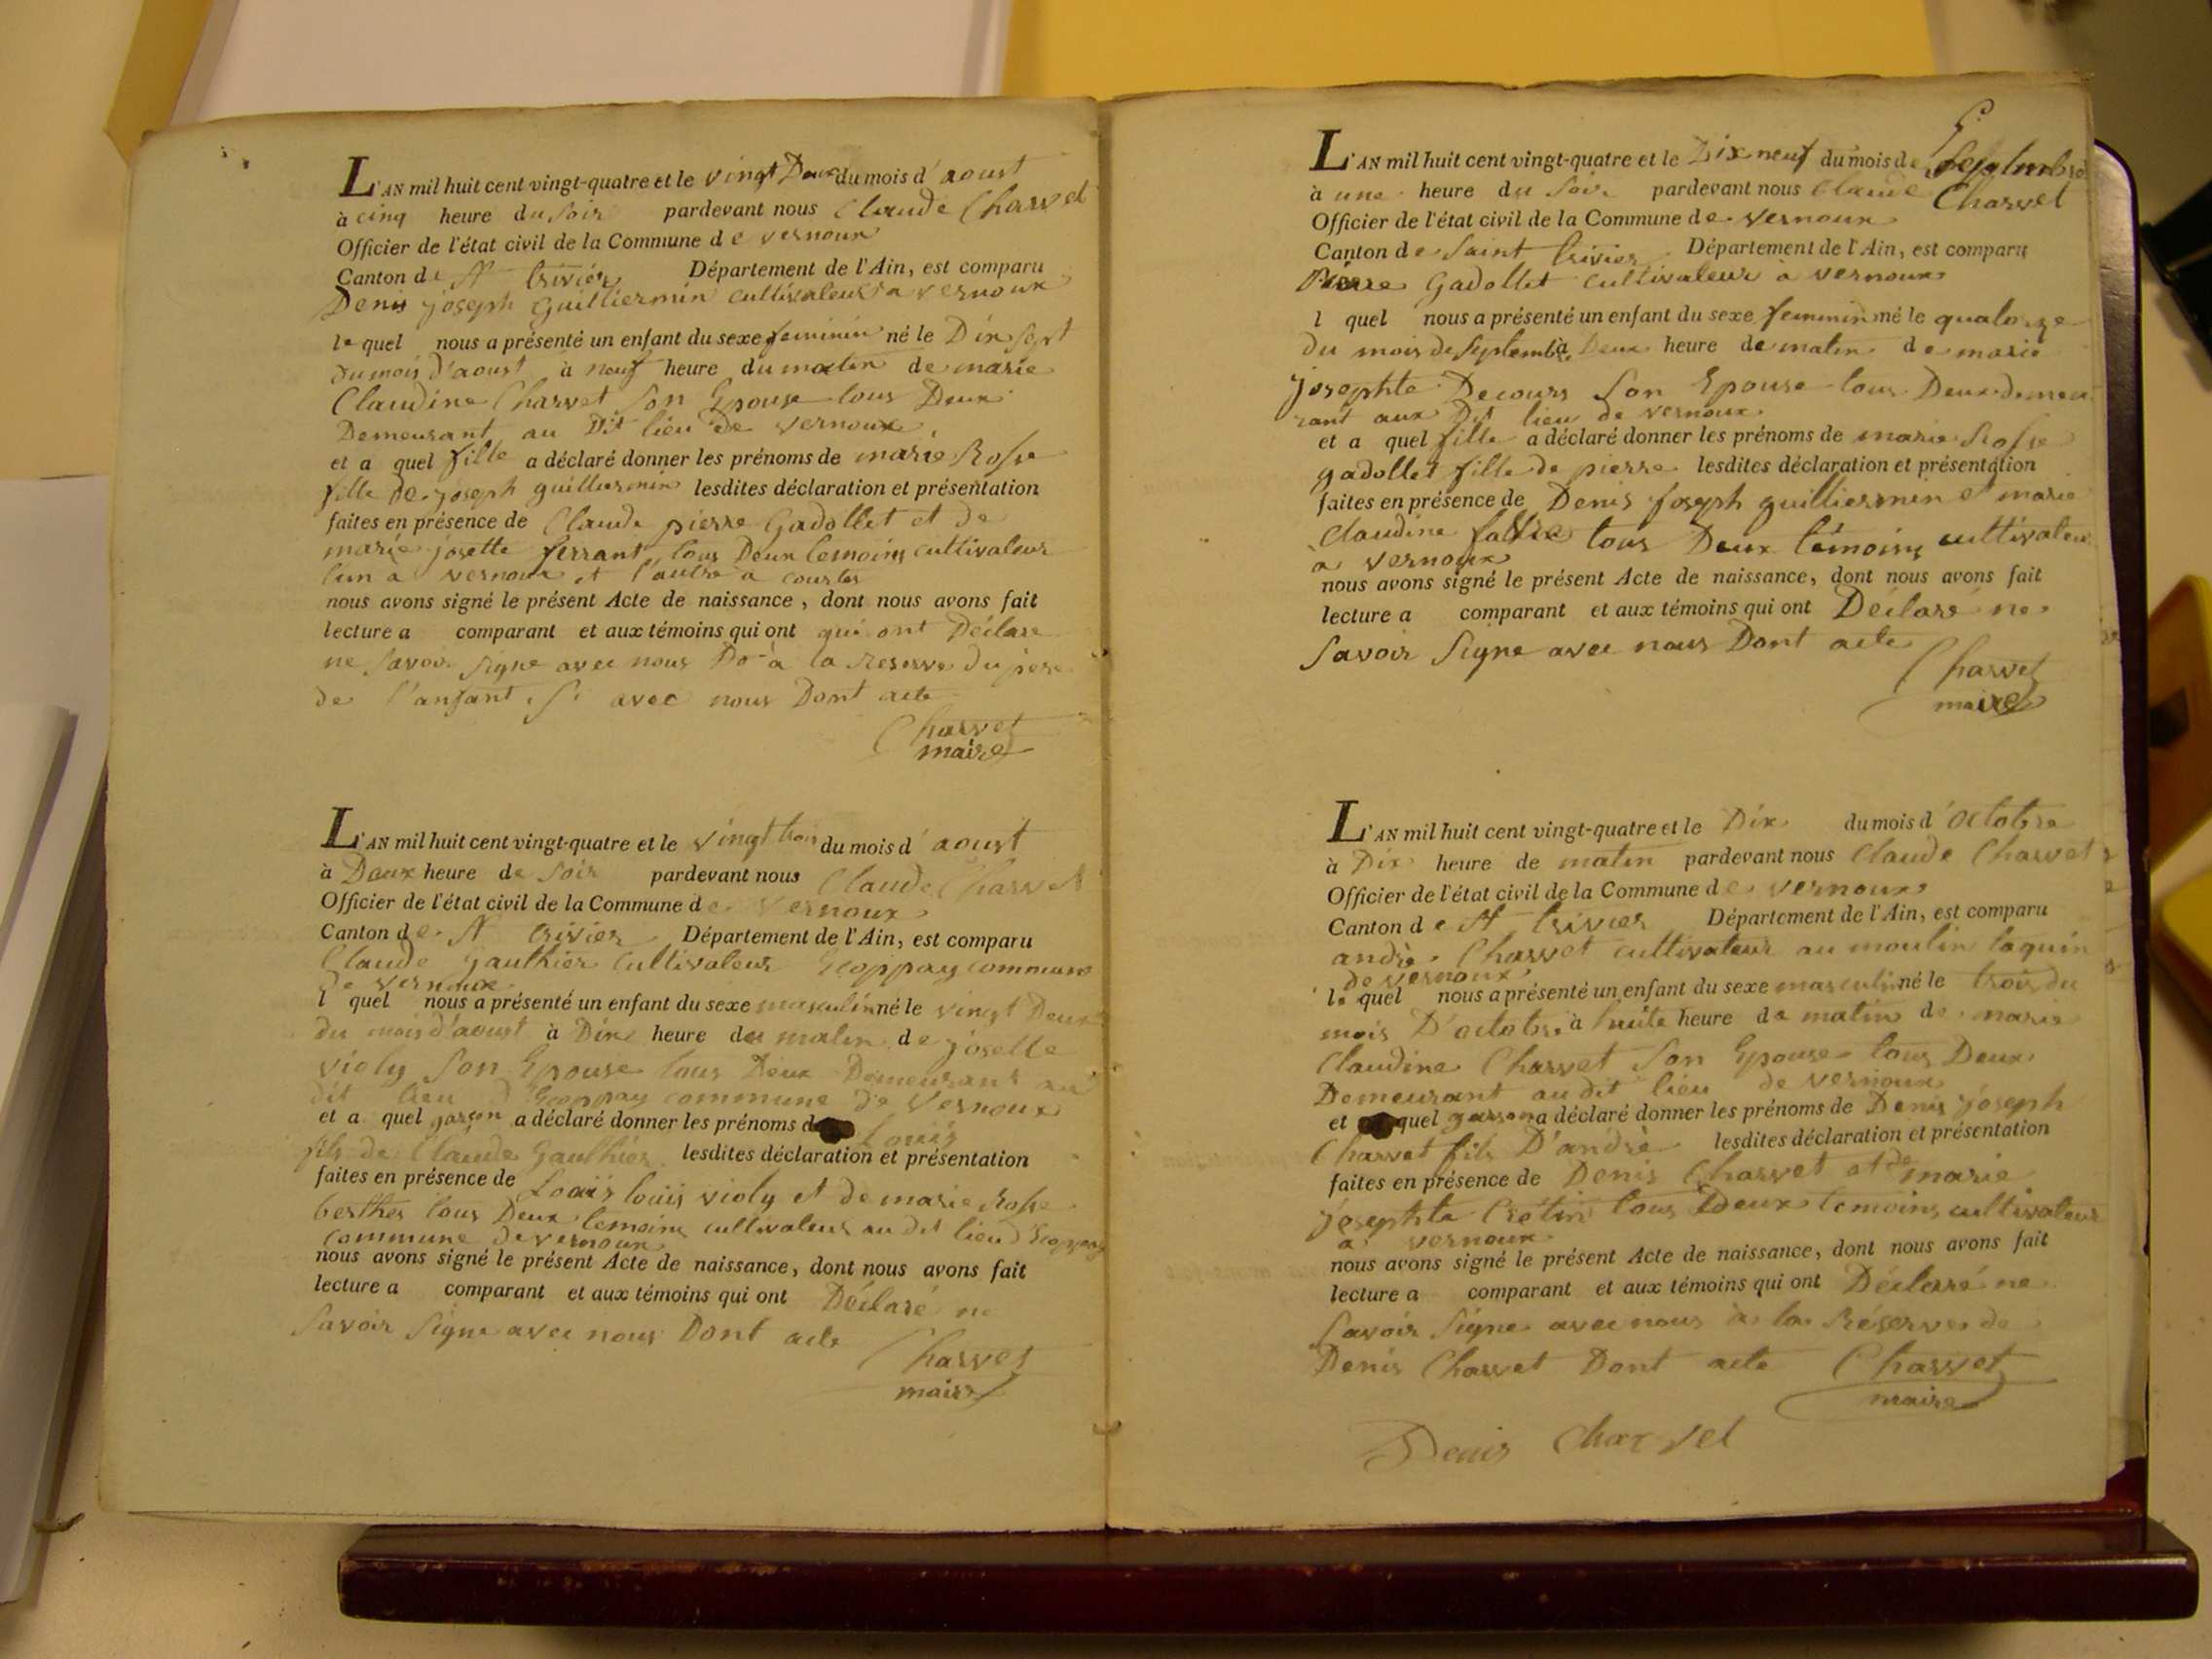 L'AN mil huit cent vingt-quatre et le vingt Deux du mois d'aoust
à cinq heure du soir pardevant nous Claude Charvet
Officier de l'état civil de la Commune de vernoux
Canton de St trivier Département de l'Ain, est comparu
Denis joseph Guilliermin cultivateur a vernoux
le quel nous a présenté un enfant du sexe feminin né le Dix sept
du mois d'aoust à neuf heure du matin de marie
Claudine Charvet son Epouse tous Deux
Demeurant au Dit lieu De vernoux
et a quel fille a déclaré donner les prénoms de marie Rosse
fille de joseph guilliermin lesdites déclaration et présentation
faites en présence de Claude pierre Gadollet et de
marie josette ferrant tous Deux temoins cultivateur
l'un a vernoux et l'autre a courtes
nous avons signé le présent Acte de naissance, dont nous avons fait
lecture a comparant et aux témoins qui ont qui ont Déclare
ne savoir signe avec nous à la reserve du pere
de l'anfant avec nous Dont acte
Charvet
maire
L'AN mil huit cent vingt-quatre et le vingt trois du mois d'aoust
à Deux heure de soir pardevant nous Claude Charvet
Officier de l'état civil de la Commune de vernoux
Canton de St trivier Département de l'Ain, est comparu
Claude gauthier cultivateur Ecoppay commune
de vernoux
l quel nous a présenté un enfant du sexe masculin né le vingt Deux
du mois d'aoust à Dix heure du matin de josette
violy son Epouse tous Deux Demeurant au
dit lieu d'Ecoppay commune de vernoux
et a quel garçon a déclaré donner les prénoms d Louis
fils de Claude Gauthier lesdites déclaration et présentation
faites en présence de Louis louis violy et de marie Rosse
berther tous Deux temoins cultivateur au dit lieu d'Ecoppay
commune de vernoux
nous avons signé le présent Acte de naissance, dont nous avons fait
lecture a comparant et aux témoins qui ont Déclaré ne
savoir signe avec nous Dont acte
Charvet
maire
L'AN mil huit cent vingt-quatre et le Dix neuf du mois de Septembre
à une heure du soir pardevant nous Claude Charvet
Officier de l'état civil de la Commune de vernoux
Canton de saint trivier Département de l'Ain, est comparu
Pierre Gadollet cultivateur à vernoux
l quel nous a présenté un enfant du sexe feminin né le quatorze
du mois de septembre à Deux heure de matin de marie
josephte Decours son Epouse tous Deux demeu
rant aux Dit lieu de vernoux
et a quel fille a déclaré donner les prénoms de marie Rosse
gadollet fille de pierre lesdites déclaration et présentation
faites en présence de Denis joseph guilliermin et marie
Claudine tous Deux témoins cultivateur
à vernoux
nous avons signé le présent Acte de naissance, dont nous avons fait
lecture a comparant et aux témoins qui ont Déclaré ne
savoir signe avec nous Dont acte
Charvet
maire
L'AN mil huit cent vingt-quatre et le Dix du mois d'octobre
à Dix heure de matin pardevant nous Claude Charvet
Officier de l'état civil de la Commune de vernoux
Canton de St trivier Département de l'Ain, est comparu
andré Charvet cultivateur au moulin taquin
de vernoux
le quel nous a présenté un enfant du sexe masculin né le trois du
mois D'octobre à huite heure de matin de marie
Claudine Charvet son Epouse tous Deux
Demeurant au dit lieu de vernoux
et quel garson a déclaré donner les prénoms de Denis joseph
Charvet fils D'andrè lesdites déclaration et présentation
faites en présence de Denis Charvet et de marie
josephte Crétin tous Deux temoins cultivateur
a vernoux
nous avons signé le présent Acte de naissance, dont nous avons fait
lecture a comparant et aux témoins qui ont Déclaré ne
savoir signe avec nous à la Réserve de
Denis Charvet Dont acte Charvet
maire
Denis Charvet